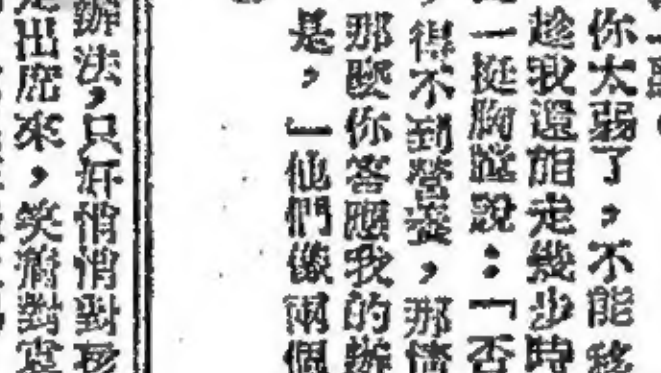 你太弱了，不能移
趁我還能走幾步時
一挺胸膛說：「否
，得不到營養，那情
那麼你答應我的辦
是，」他們像兩個
辦法，只好悄悄對
出席來，笑著對